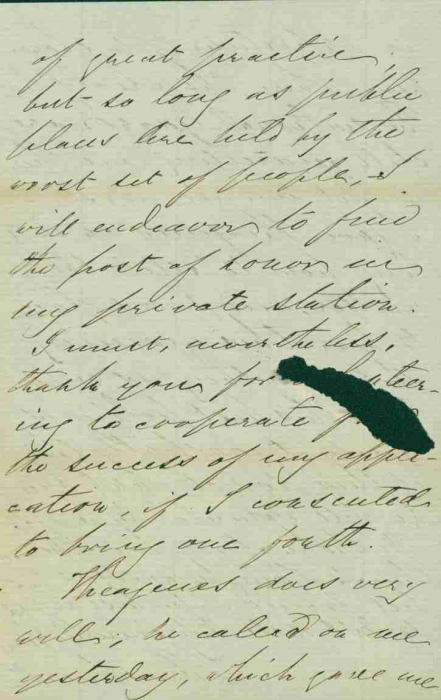 of great practice,
but so long as public
places are held by the
worst set of people, I
will endeavor to find
the post of honor in
my private station.
I must, nevertheless,
thank you for teer-
ing to cooperate
the success of my appli-
cation, if I consented
to bring one forth.
Theagenes does very
well; he called on me
yesterday, which gave me